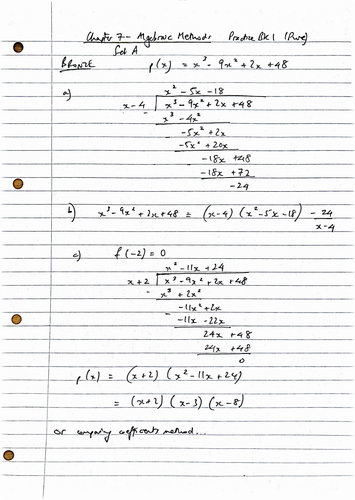 Chapter 7 - Algebraic Methods Practice Bk 1 (Pure)
Set A
BRONZE p(x) = x³ - 9x² + 2x + 48
a) x² - 5x - 18
x-4 | x³ - 9x² + 2x + 48
- x³ - 4x²
-5x² + 2x
-5x² + 20x
-18x + 48
-18x + 72
-24
b) x³ - 9x² + 2x + 48 = (x-4)(x² - 5x - 18) - 24/(x-4)
c) f(-2) = 0
x² - 11x + 24
x+2 | x³ - 9x² + 2x + 48
- x³ + 2x²
-11x² + 2x
-11x - 22x
24x + 48
24x + 48
0
p(x) = (x+2)(x² - 11x + 24)
= (x+2)(x-3)(x-8)
or comparing coefficients method...